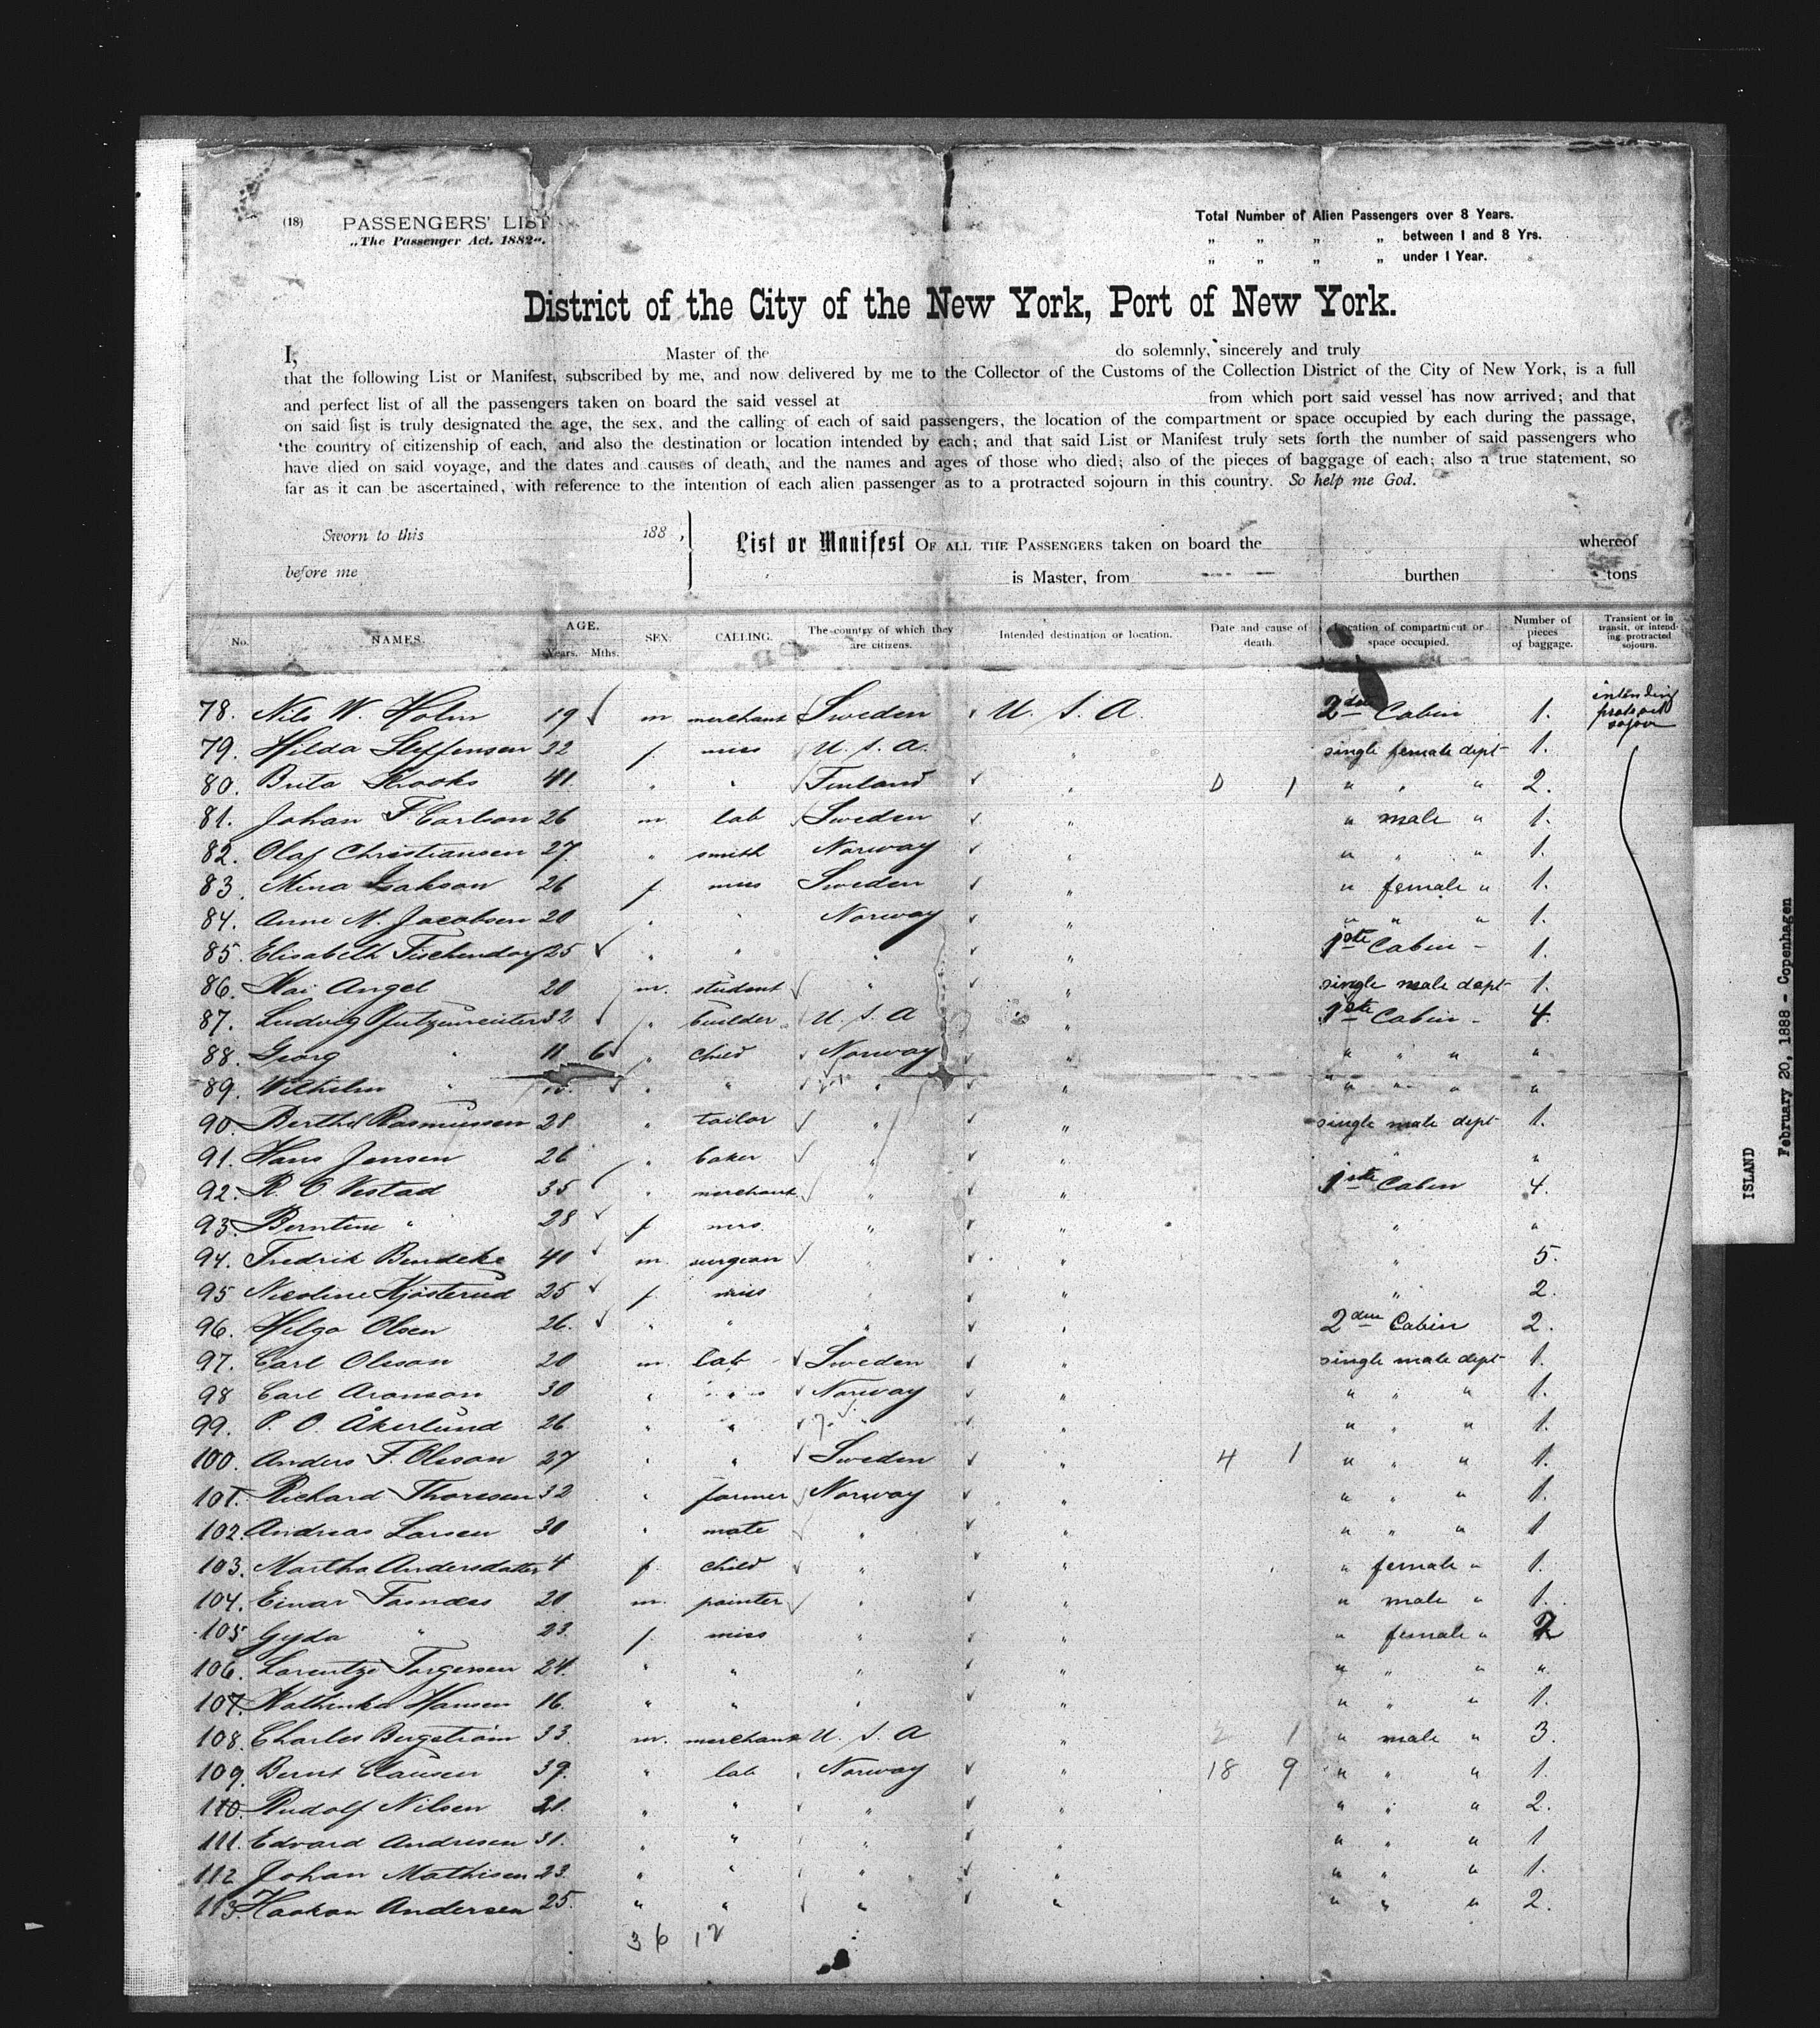 (18) PASSENGERS' LIST
„The Passenger Act, 1882“.
Total Number of Alien Passengers over 8 Years.
„ „ „ „ between 1 and 8 Yrs.
„ „ „ „ under 1 Year.
District of the City of the New York, Port of New York.
I, Master of the do solemnly, sincerely and truly
that the following List or Manifest, subscribed by me, and now delivered by me to the Collector of the Customs of the Collection District of the City of New York, is a full
and perfect list of all the passengers taken on board the said vessel at from which port said vessel has now arrived; and that
on said list is truly designated the age, the sex, and the calling of each of said passengers, the location of the compartment or space occupied by each during the passage,
the country of citizenship of each, and also the destination or location intended by each; and that said List or Manifest truly sets forth the number of said passengers who
have died on said voyage, and the dates and causes of death, and the names and ages of those who died; also of the pieces of baggage of each; also a true statement, so
far as it can be ascertained, with reference to the intention of each alien passenger as to a protracted sojourn in this country. So help me God.
Sworn to this 188 ,
before me
List or Manifest OF ALL THE PASSENGERS taken on board the whereof
is Master, from burthen tons
No. NAMES. AGE. Years. Mths. SEX. CALLING. The country of which they are citizens. Intended destination or location. Date and cause of death. Location of compartment or space occupied. Number of pieces of baggage. Transient or in transit, or intending protracted sojourn.
78. Nils W. Holm 19 m merchant Sweden U. S. A. 2den Cabin 1. intending
79. Hilda Steffensen 22 f. miss U. S. A. " single female dept 1.
80. Brita 41. " " Finland " D 1 " " " 2.
81. Johan F. Carlson 26 m. lab Sweden " " male " 1.
82. Olaf Christiansen 27. " smith Norway " " " " 1.
83. Mina Isakson 26 f. miss Sweden " " female " 1.
84. Anne M. Jacobsen 20 " " Norway " " " " 1.
85. Elisabeth Tischendorf 25 " " " " 1ste Cabin 1.
86. Kai Angel 20 m. student " " single male dept 1.
87. Ludvig Pfutzenreiter 32 " builder U. S. A " 1ste Cabin 4.
88. Georg " 11 6 " child Norway " " " " "
89. Wilhelm " " " " " " " " "
90. Berthel Rasmussen 28 " tailor " " single male dept 1.
91. Hans Jensen 26 " baker " " " "
92. R. O Vestad 35 " merchant " " 1ste Cabin 4.
93. Berntine " 28 f mrs " " " "
94. Fredrik Bendeke 40 m. surgeon " " " 5.
95 Nicoline Kjösterud 25 f. miss " " " 2.
96. Helga Olsen 26. " " " " 2den Cabin 2.
97. Carl Olsson 20 m. lab Sweden " single male dept 1.
98 Carl Aronson 30 " " Norway " " " " 1.
99. P. O. Åkerlund 26 " " " " " " " 1.
100. Anders F. Olsson 27 " " Sweden " 4 1 " " " 1.
101. Richard Thoresen 32 " farmer Norway " " " " 1.
102. Andreas Larsen 30 " mate " " " " " 1
103. Martha Andersdatter 4 f. child " " " female " 1.
104. Einar 20 m. painter " " " male " 1.
105 Gyda " 23. f. miss " " " female " 2
106. Lorentze Torgersen 24. " " " " " " " "
107. Kathinka Hansen 16. " " " " " " " 1.
108. Charles Bergström 33. m. merchant U. S. A " 2 1 " male " 3.
109. Bernt Clausen 39. " lab Norway " 18 9 " " " 1.
110. Rudolf Nilsen 21. " " " " " " " 2.
111. Edvard Andresen 31. " " " " " " " 1
112 Johan Mathisen 23. " " " " " " " 1.
113. Haakon Andersen 25. " " " " " " " 2.
36 12
ISLAND
February 20, 1888 - Copenhagen